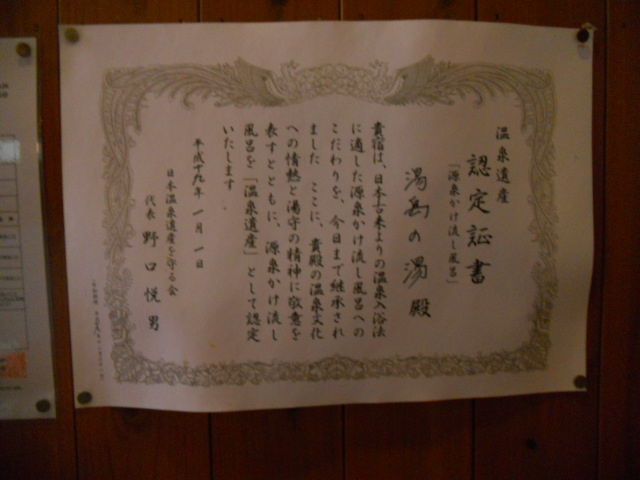 温泉遺産
認定証書
「源泉かけ流し風呂」
湯島の湯 殿
貴宿は、日本古来よりの温泉入浴法
に適した源泉かけ流し風呂への
こだわりを、今日まで継承され
ました ここに、貴殿の温泉文化
への情熱と湯守の精神に敬意を
表すとともに、源泉かけ流し
風呂を「温泉遺産」として認定
いたします
平成十九年 一月一日
日本温泉遺産を守る会
代表 野口悦男